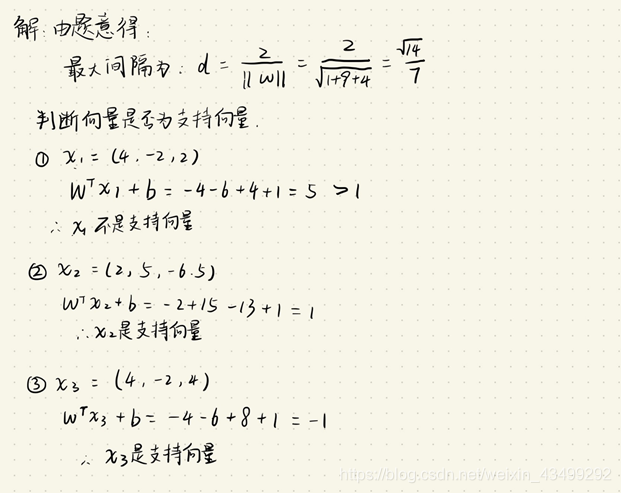 解:由题意得:
最大间隔为: d = 2/||w|| = 2/√(1+9+4) = √14/7
判断向量是否为支持向量.
① x₁ = (4, -2, 2)
Wᵀx₁ + b = -4-6+4+1 = 5 > 1
∴ x₁ 不是支持向量
② x₂ = (2, 5, -6.5)
Wᵀx₂+b = -2+15-13+1 = 1
∴ x₂是支持向量
③ x₃ = (4, -2, 4)
Wᵀx₃ + b = -4-6+8+1 = -1
∴ x₃是支持向量
https://blog.csdn.net/weixin_43499292